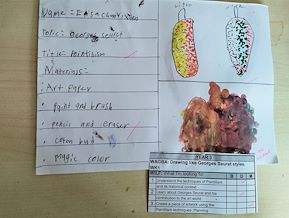 Name =
Topic = Georges seurat
Title = Pointilism
Materials =
• Art Paper
• paint and brush
• pencil and eraser
• coton bud
• magic color
YEAR 3
WALT: Drawing like Georges Seurat styles.
WK1
WILF: What I'm looking for
Understand the techniques of Pointilism
and its historical context
Learn about Georges Seurat and his
contribution to the art world
Create a piece of artwork using the
Pointilism techniques: Planning